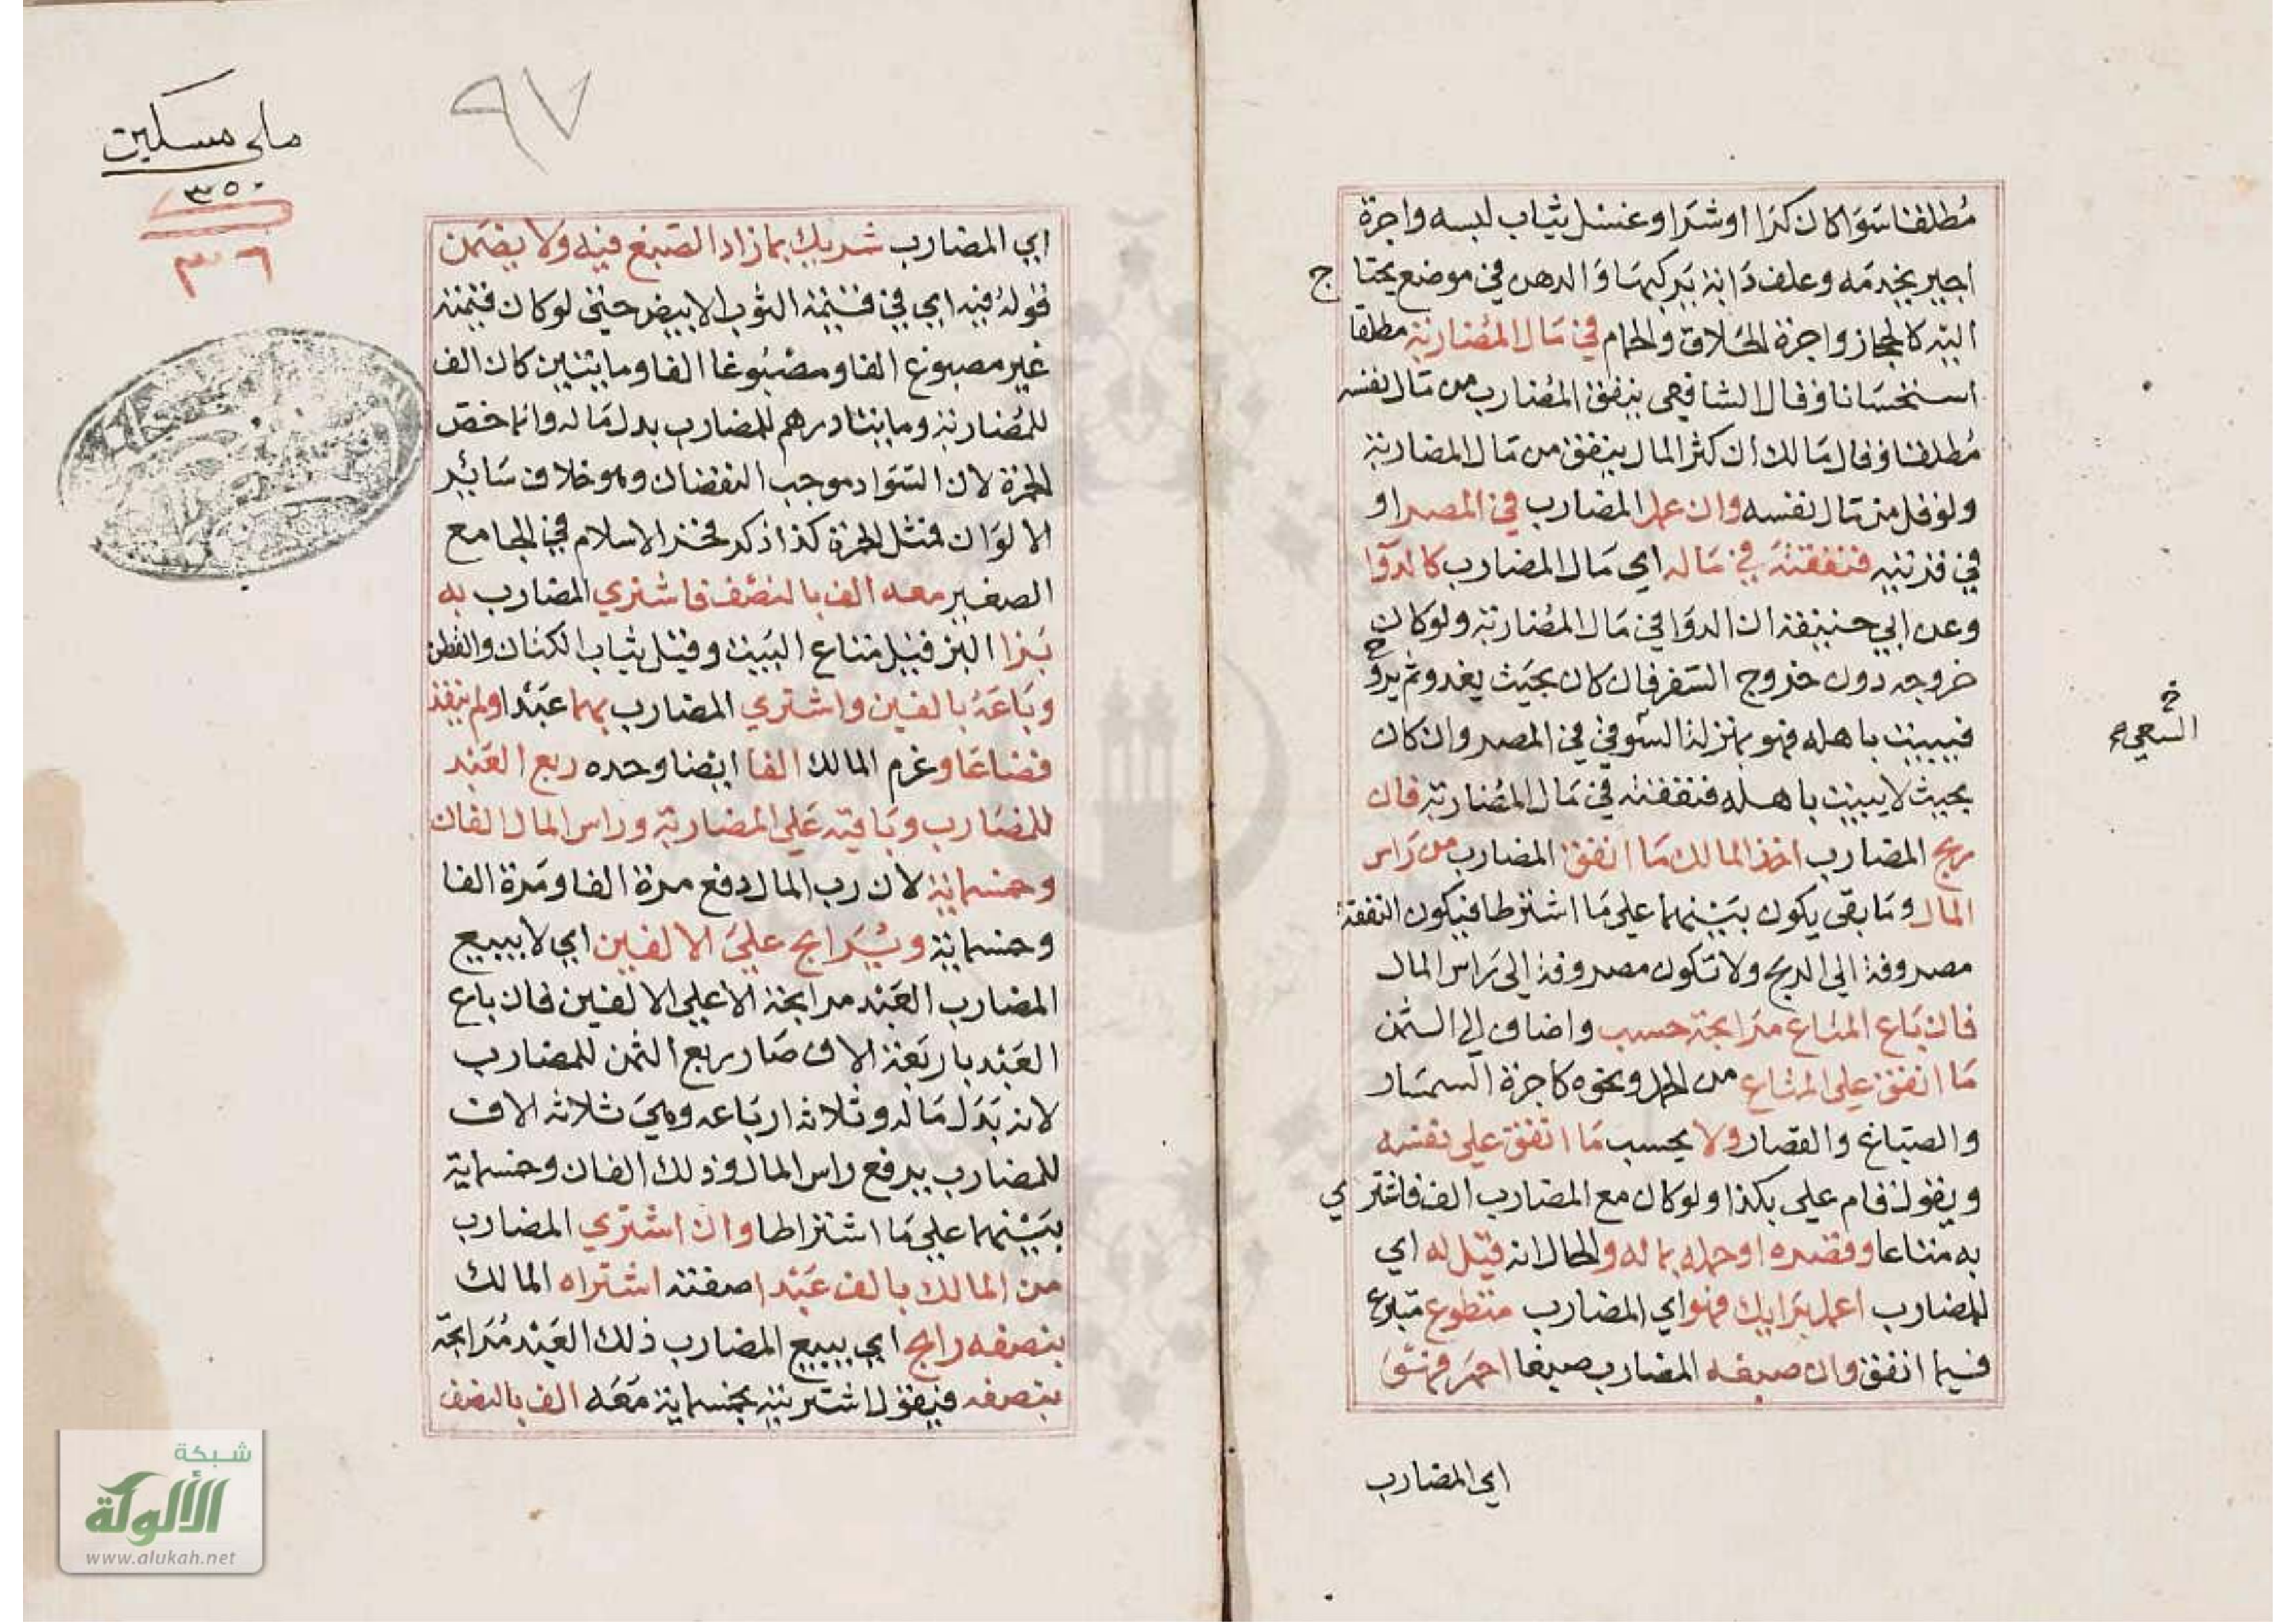 مطلقا سوا كان كرا او شرا وغسل ثياب لبسه واجرة
اجير يخدمه وعلف دابة يركبها والدهن في موضع يحتاج
اليه كالحجاز واجرة الحلاق والحمام في مال المضاربة مطلقا
استحسانا وقال الشافعي ينفق المضارب من مال نفسه
مطلقا وقال مالك ان كثر المال ينفق من مال المضاربة
ولو قل من مال نفسه وان عمل المضارب في المصر او
في قريته فنفقته في ماله اي مال المضارب كالدوا
وعن ابي حنيفة ان الدوا في مال المضاربة ولو كان
خروجه دون خروج السفر فان كان بحيث يغدو ثم يروح
فيبيت باهله فهو بمنزلة السوقي في المصر وان كان
بحيث لا يبيت باهله فنفقته في مال المضاربة فان
ربح المضارب اخذ المالك ما انفق المضارب من راس
المال وما بقى يكون بينهما على ما اشترطا فيكون النفقة
مصروفة الى الربح ولا تكون مصروفة الى راس المال
فان باع المتاع مرابحة حسب واضاف الى الثمن
ما انفق على المتاع من الحمل ونحوه كاجرة السمسار
والصباغ والقصار ولا يحسب ما انفق على نفسه
ويقول قام علي بكذا ولو كان مع المضارب الف فاشتري
به متاعا وقصره او حمله بماله والحال انه قيل له اي
للمضارب اعمل برايك فهو اي المضارب متطوع متبرع
فيما انفق وان صبغه المضارب صبغا احمر فهو
اي المضارب
ملى مسكين
٣٥٠
٣٠٦
٩٧
اي المضارب شريك بما زاد الصبغ فيه ولا يضمن
قوله فيه اي في قيمة الثوب الابيض حتى لو كان قيمته
غير مصبوغ الفا ومصبوغا الفا ومايتين كان الف
للمضاربة ومايتا درهم للمضارب بدل ماله وانما خص
الحمرة لان السواد موجب النقصان وهو خلاف سائر
الالوان فمثل الحمرة كذا ذكر فخر الاسلام في الجامع
الصغير معه الف بالنصف فاشتري المضارب به
بزا البز قيل متاع البيت وقيل ثياب الكتان والقطن
وباعه بالفين واشتري المضارب بهما عبدا ولم ينقد
فضاعا وغرم المالك الفا ايضا وحده ربع العبد
للمضارب وباقيه على المضاربة وراس المال الفان
وخمسماية لان رب المال دفع مرة الفا ومرة الفا
وخمسماية ويرابح على الالفين اي لا يبيع
المضارب العبد مرابحة الا على الالفين فان باع
العبد باربعة الاف صار ربع الثمن للمضارب
لانه بدل ماله وثلاثة ارباعه وهي ثلاثة الاف
للمضارب يرفع راس المال وذلك الفان وخمسماية
بينهما على ما اشتراطا وان اشتري المضارب
من المالك بالف عبدا صفته اشتراه المالك
بنصفه رابح اي يبيع المضارب ذلك العبد مرابحة
بنصفه فيقول اشتريته بخمسماية معه الف بالنصف
شبكة
الألوكة
www.alukah.net